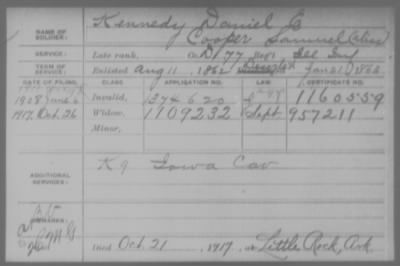 Kennedy Daniel C
NAME OF SOLDIER: Cooper Samuel (alias)
SERVICE: Late rank, Co. D 77 Reg't Ill Inf
TERM OF SERVICE: Enlisted Aug 11, 1862 Jan 21 1863
DATE OF FILING. CLASS. APPLICATION NO. LAW. CERTIFICATE NO.
1908 June 6 Invalid, 1374620 1160559
1917 Oct. 26 Widow, 1109232 Sept 957211
Minor,
ADDITIONAL SERVICES: K 9 Iowa Cav
REMARKS:
Died Oct. 21, 1917, at Little Rock, Ark